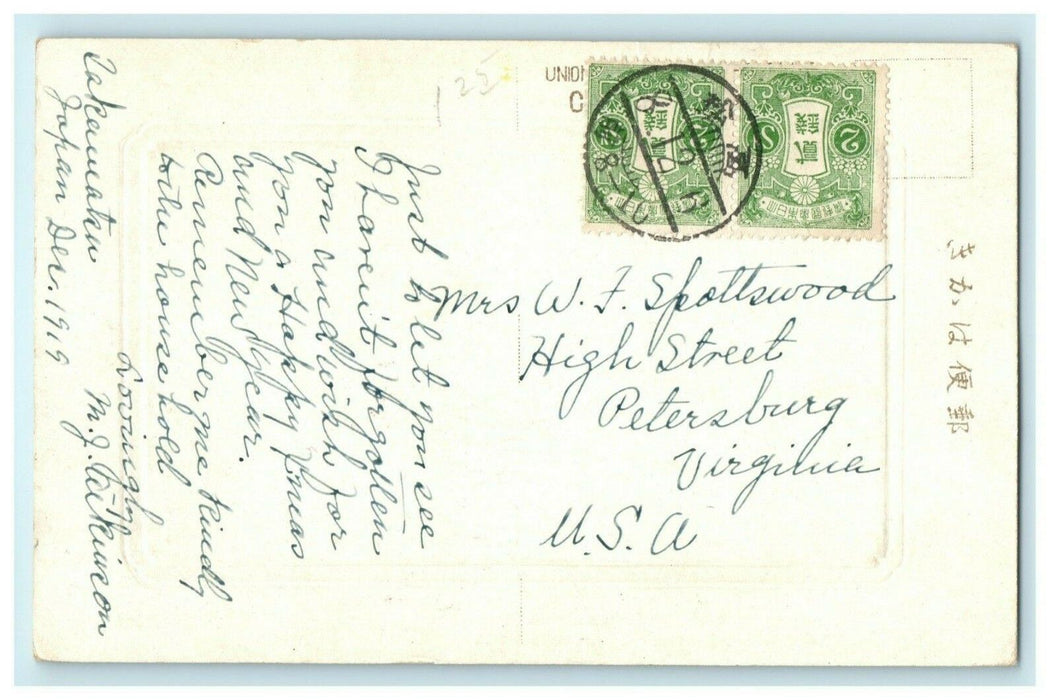 Takamatsu
Japan Dec. 1919
Just to let you see
I havent forgotten
you and wish for
you a Happy Xmas
and New Year.
Remember me kindly
to the house hold
Lovingly
M. J. Atkinson
Mrs W. F. Spottswood
High Street
Petersburg
Virginia
U.S.A
UNION
C
25
郵便はかき
貳銭
2
貳銭
2
8.12.19